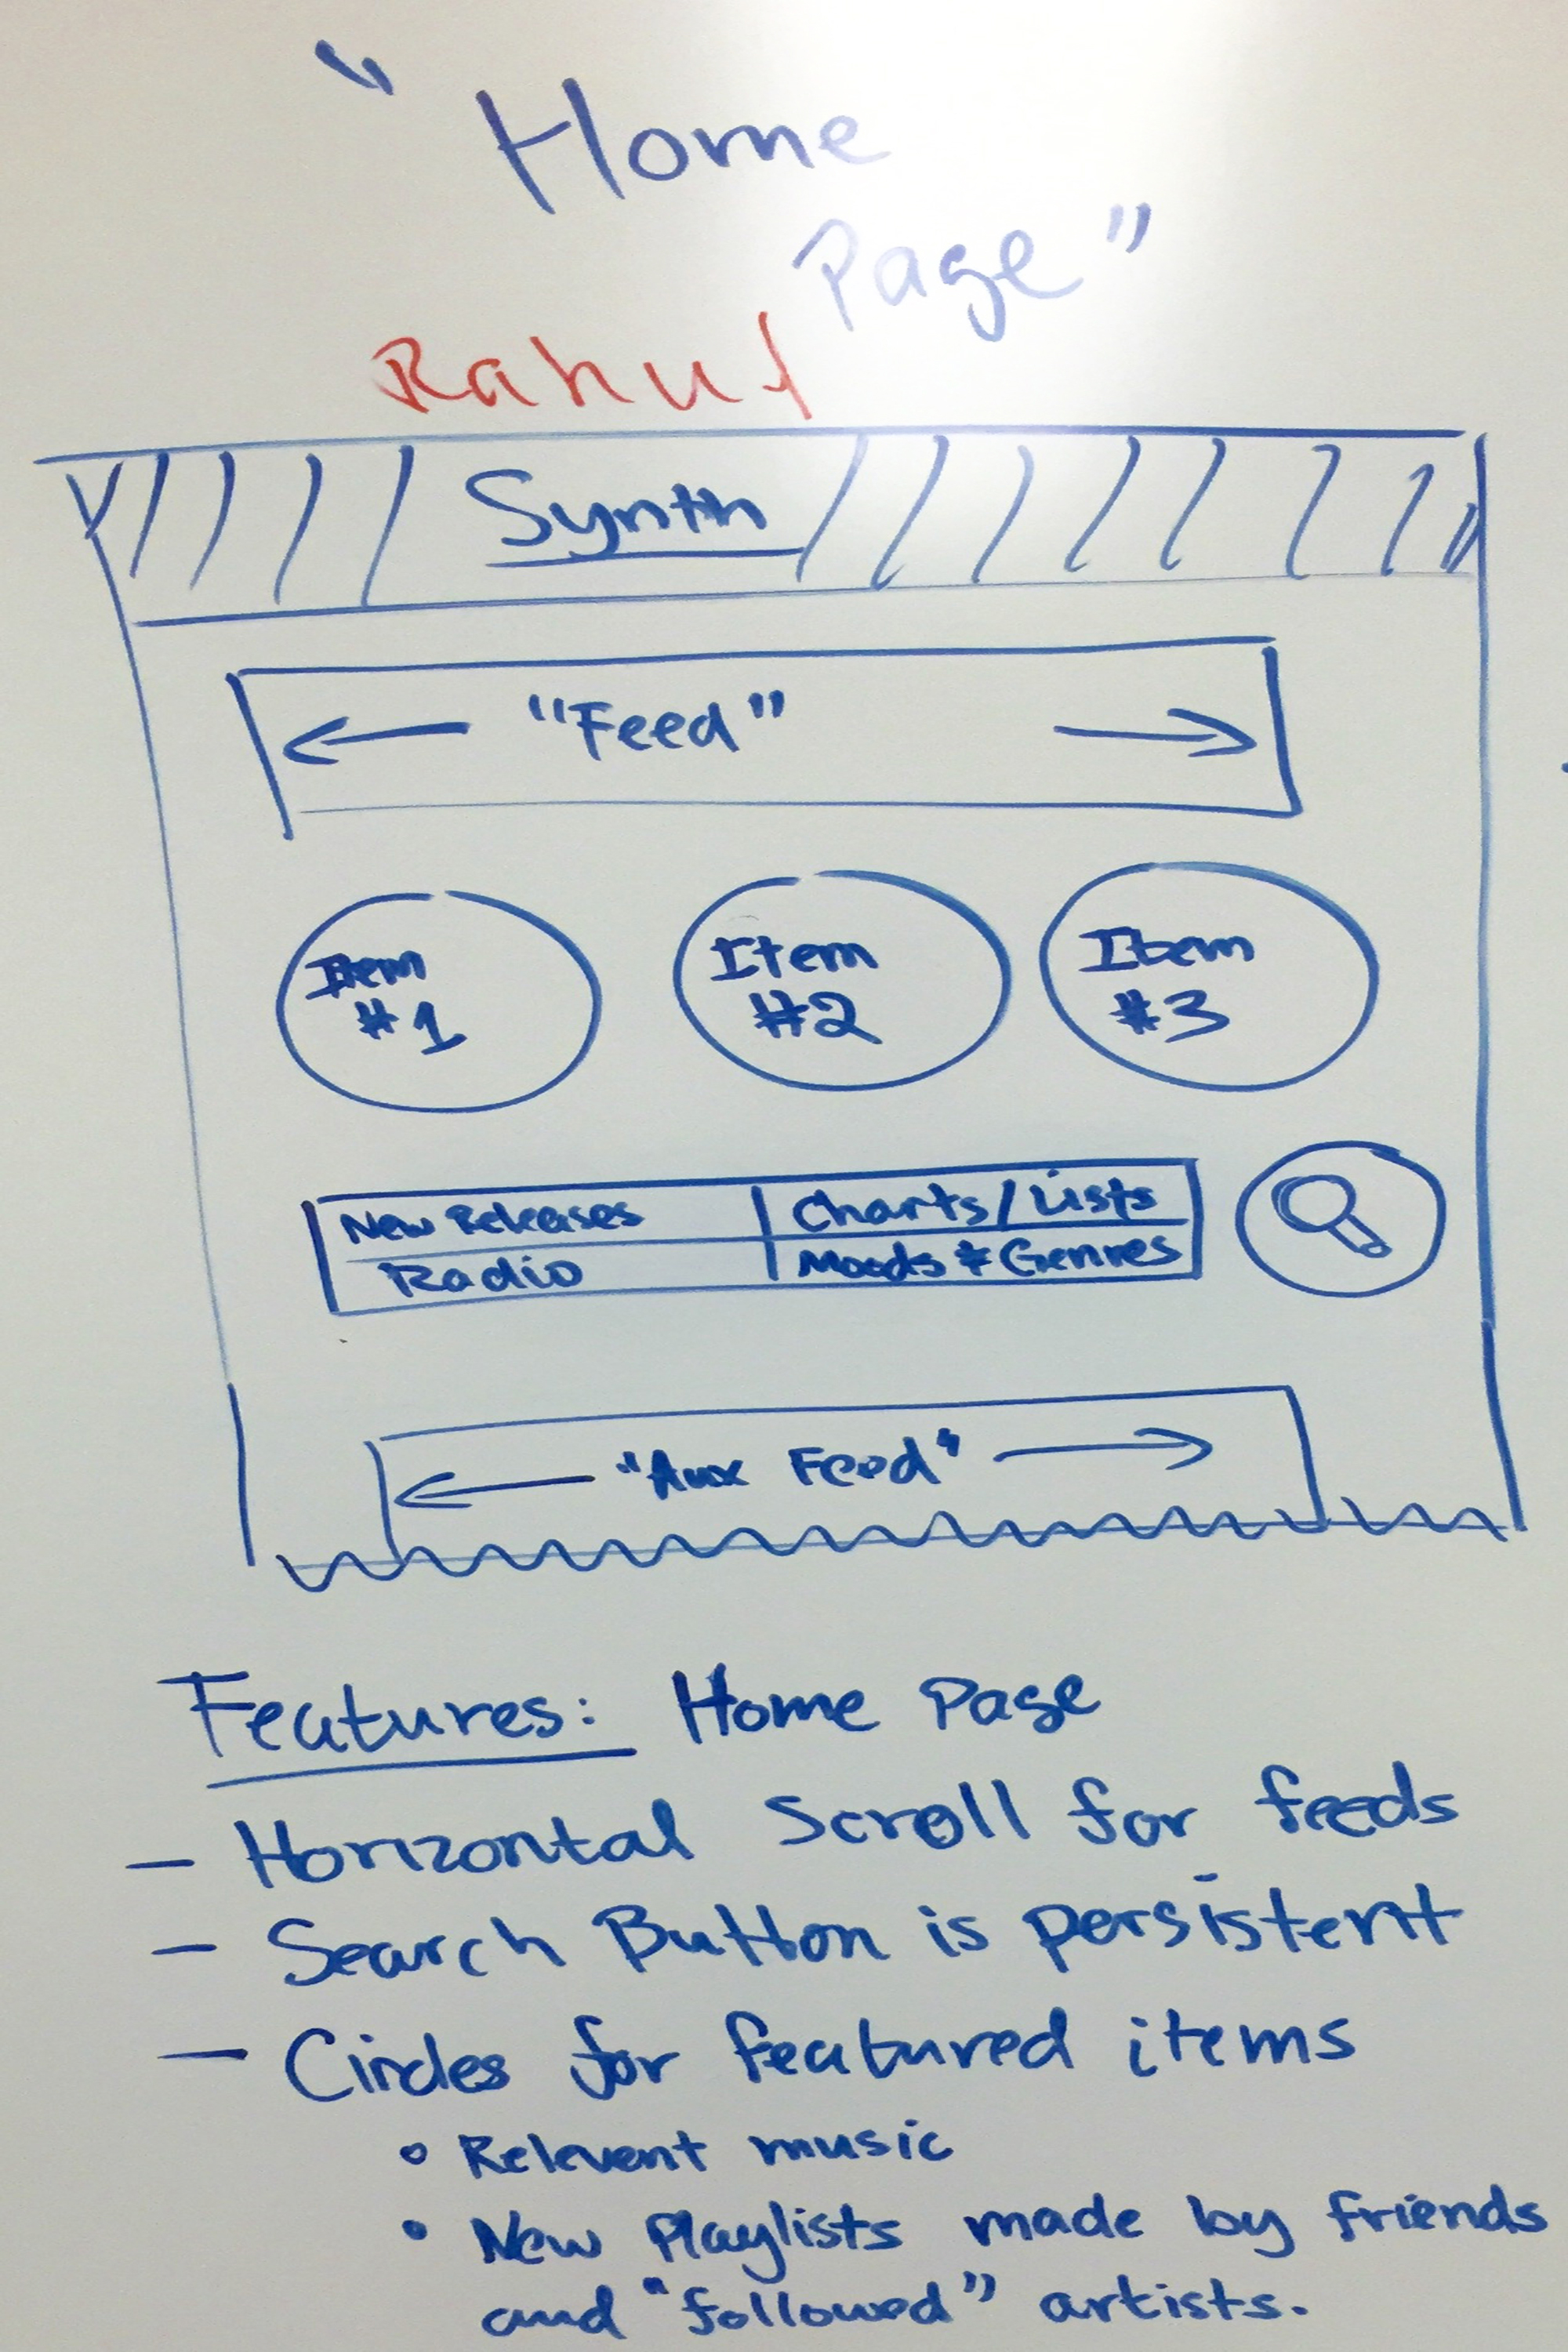 "Home
Page"
Rahul
Synth
"Feed"
Item
#1
Item
#2
Item
#3
New Releases
Charts/Lists
Radio
Moods & Genres
"Aux Feed"
Features: Home Page
- Horizontal Scroll for feeds
- Search Button is persistent
- Circles for featured items
• Relevent music
• New Playlists made by friends
and "followed" artists.